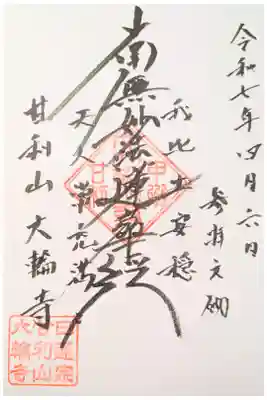 令和七年四月六日
参拝之砌
我此土安穏
南無妙法蓮華経
天人常充満
甘利山 大輪寺
日蓮宗
甘利山
大輪寺